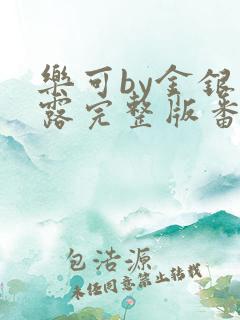 樂可by金銀
露完整版番
包浩源
未经同意禁止转载